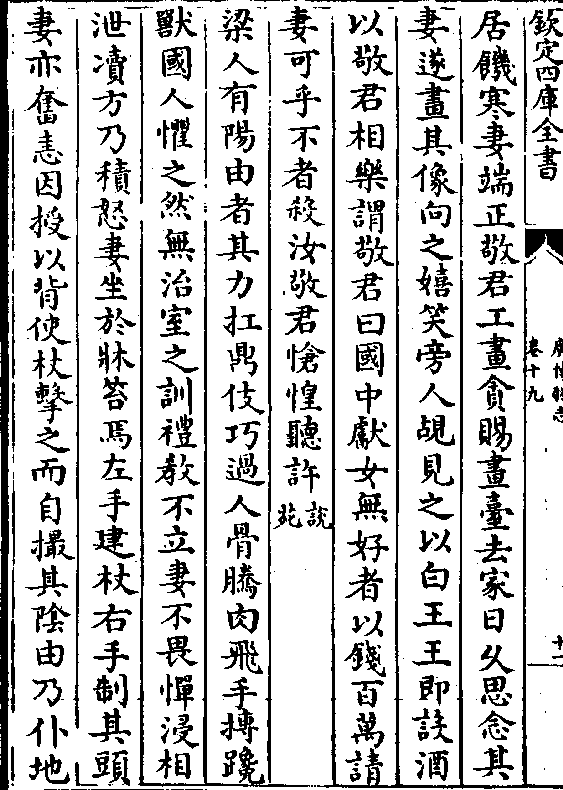 欽定四庫全書
卷十九
十二
居饑寒妻端正敬君工畫貪賜畫臺去家日久思念其
妻遂畫其像向之嬉笑旁人覘見之以白王王即設酒
以敬君相樂謂敬君曰國中獻女無好者以錢百萬請
妻可乎不者殺汝敬君愴惶聽許說苑
梁人有陽由者其力扛鼎伎巧過人骨騰肉飛手摶躥
獸國人懼之然無治室之訓禮教不立妻不畏憚浸相
泄凟方乃積怒妻坐於牀笞焉左手建杖右手制其頭
妻亦奮恚因授以背使杖擊之而自撮其陰由乃仆地